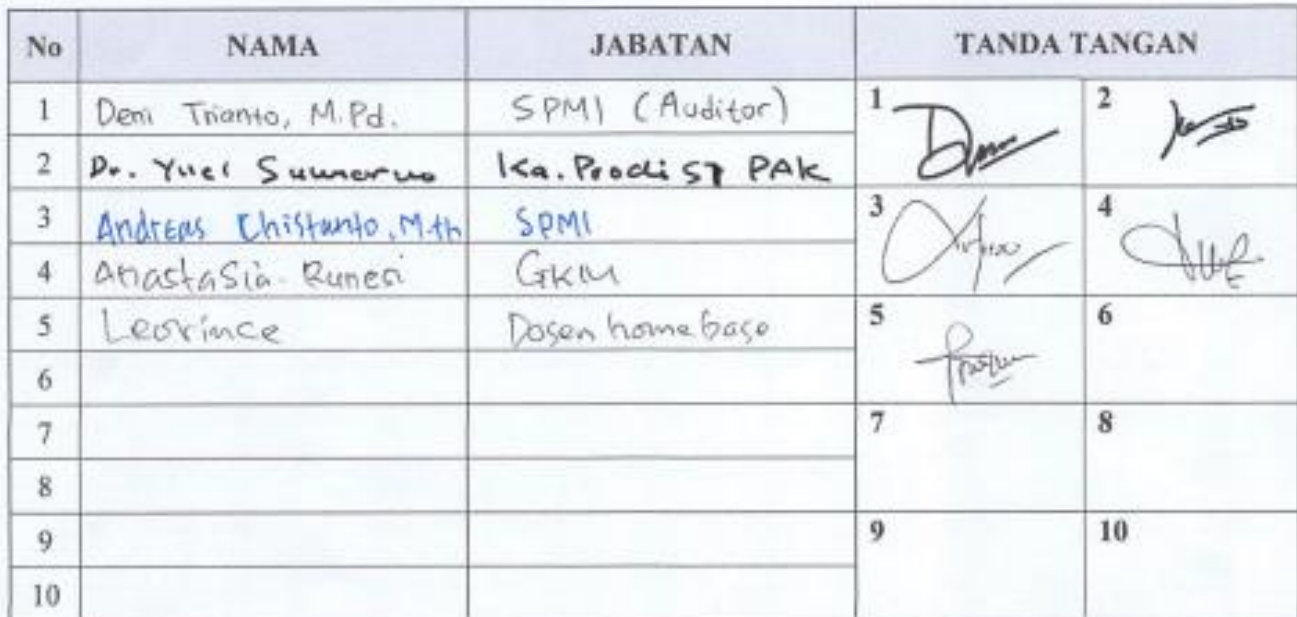 No NAMA JABATAN TANDA TANGAN
1 Deni Trianto, M.Pd. SPMI (Auditor) 1 2
2 Dr. Yuel Sumarno Ka. Prodi S2 PAK
3 Andreas Chistanto, M.th SPMI 3 4
4 Anastasia Runesi GKM
5 Leorince Dosen homebase 5 6
6
7 7 8
8
9 9 10
10